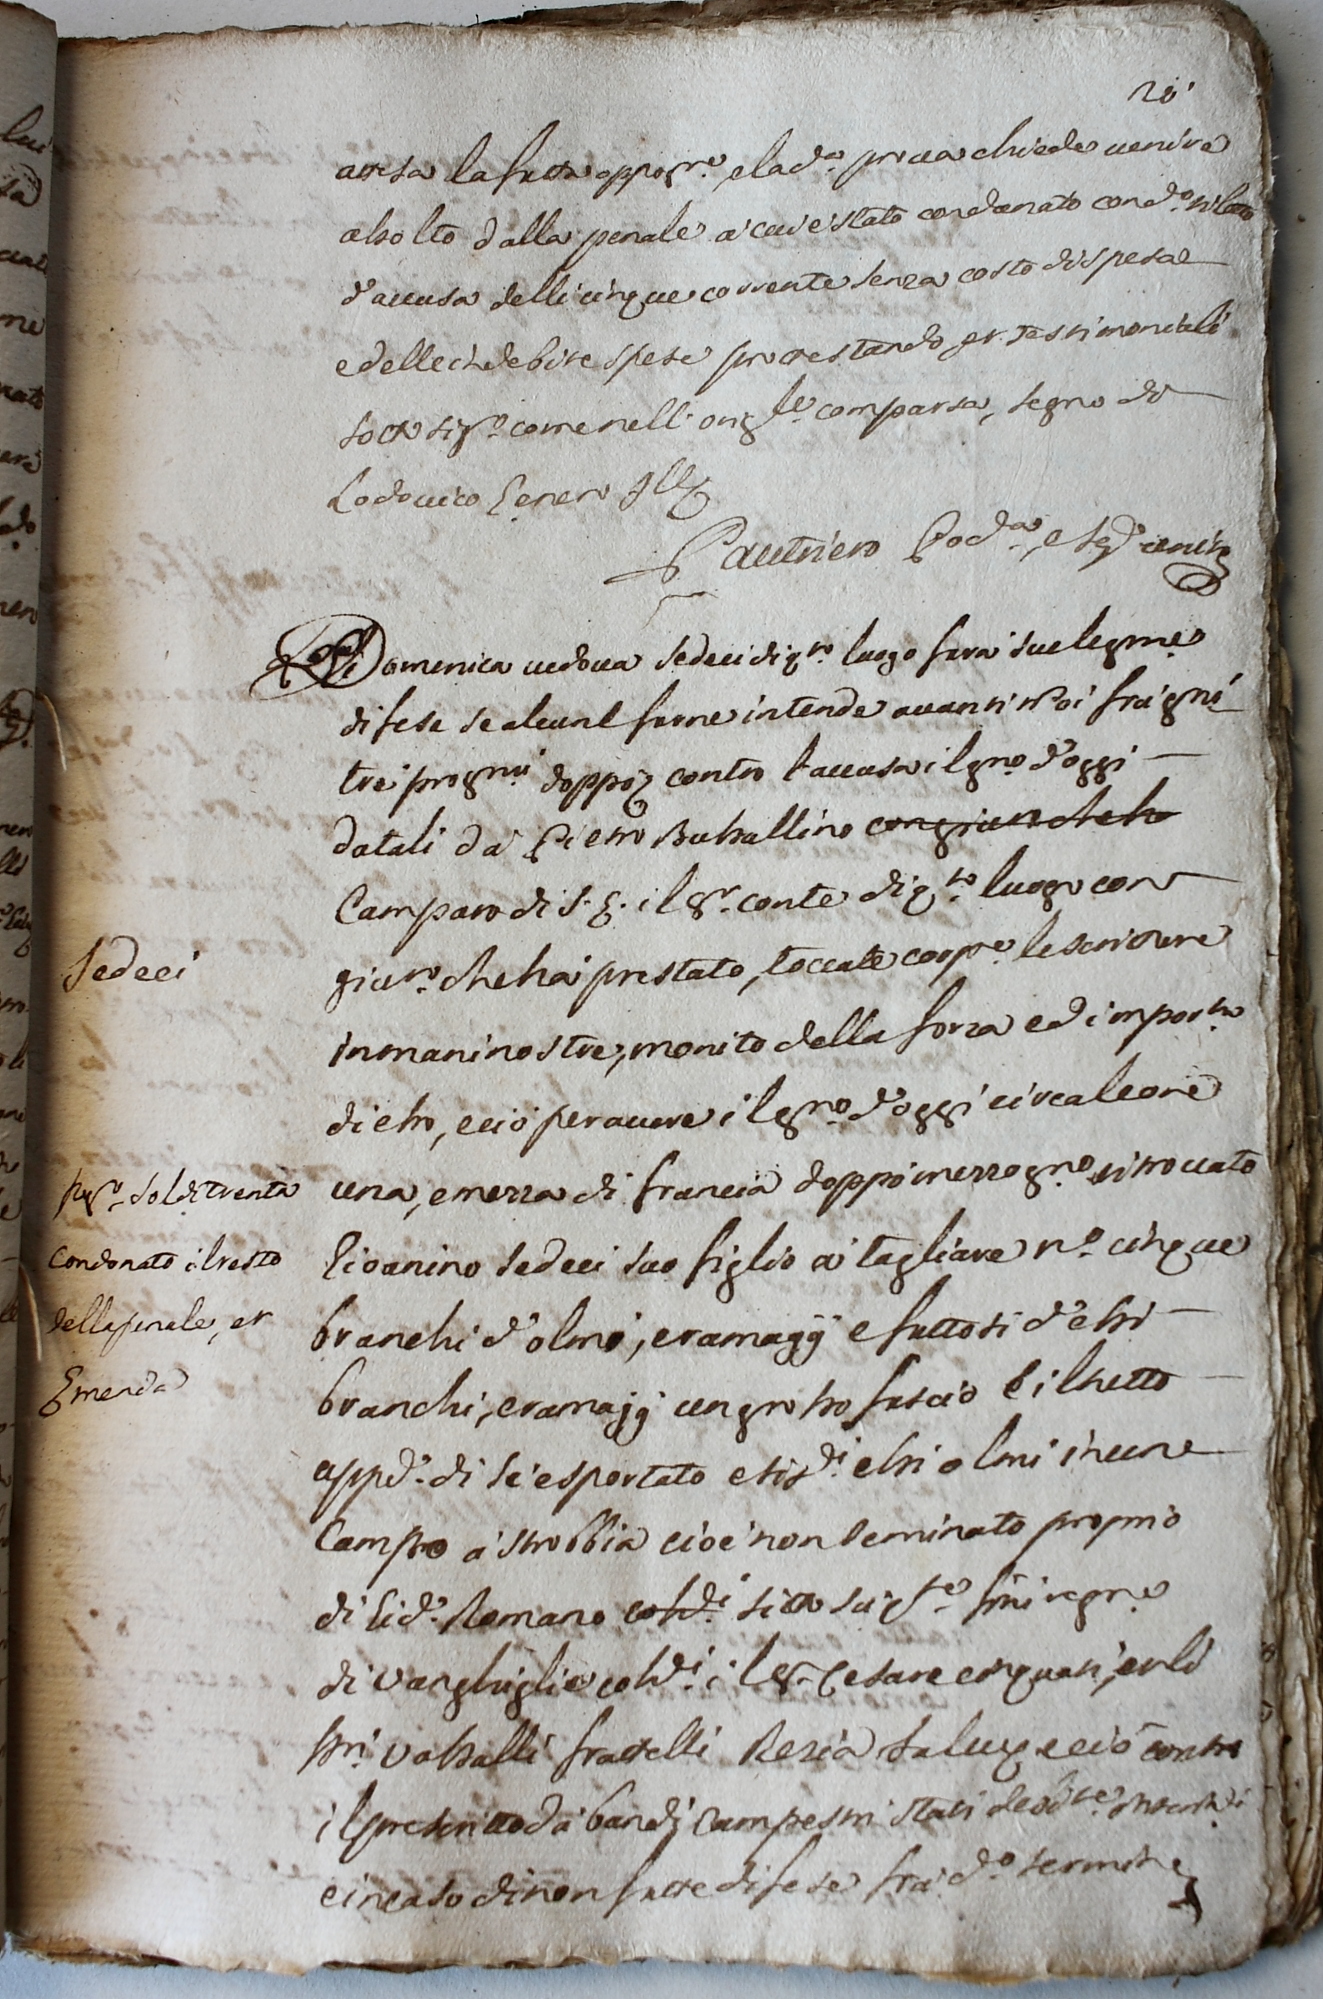 20
attesa la fatta opposne, e la da prova chiede venire
absolto dalla penale a cui è stato condanato con do
d'accusa delli cinque corrente senza costo di spesa
e delle indebite spese protestando, et testimoniali
sotto sigo come nell' origle comparsa, segno di
Lodovico Genero
Gautriero Poda, e Sego
Domenica vedova Sedeci di qto luogo farà sue legme
difese se alcune farne intende avanti Noi frà giorni
trè prog doppo contro l'accusa il gno d'oggi
datali da Pietro Bussallino
Camparo di S. E. il Sr. conte di qto luogo con
giurto che ha prestato, toccate corpe le scritture
in mani nostre, monito della forza ed importa
di esso, e ciò per avere il gno d'oggi circa le ore
Sedeci
una, e mezza di francia doppo mezzo gno ritrovato
Gioanino Sedeci suo figlio a tagliare no cinque
branchi d'olmo, e ramagij e fattosi d'essi
branchi, e ramagij un grosso fascio l'il tutto
appo di se esportato e sisdi essi olmi in une
Campo a strobbia cioè non seminato proprio
di Gida Romano sitto su qte fini regne
di Vanghiglie cohdi il Sr Cesare cinquati, et li
ssri vassalli fratelli Rezia Saluz e ciò contro
il prescritto da bandi Campestri stati debite
e in caso di non fatte difese frà do termine
pago soldi trenta
condonato il resto
della penale, et
Emenda